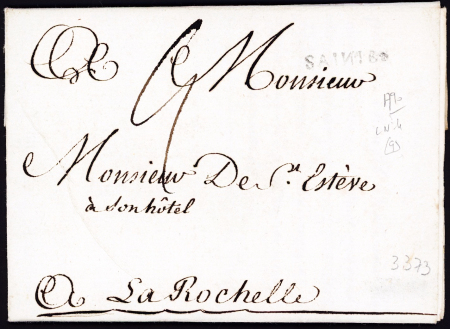 A Monsieur
SAINTES
Monsieur De St. Estève
à son hôtel
A La Rochelle
3373